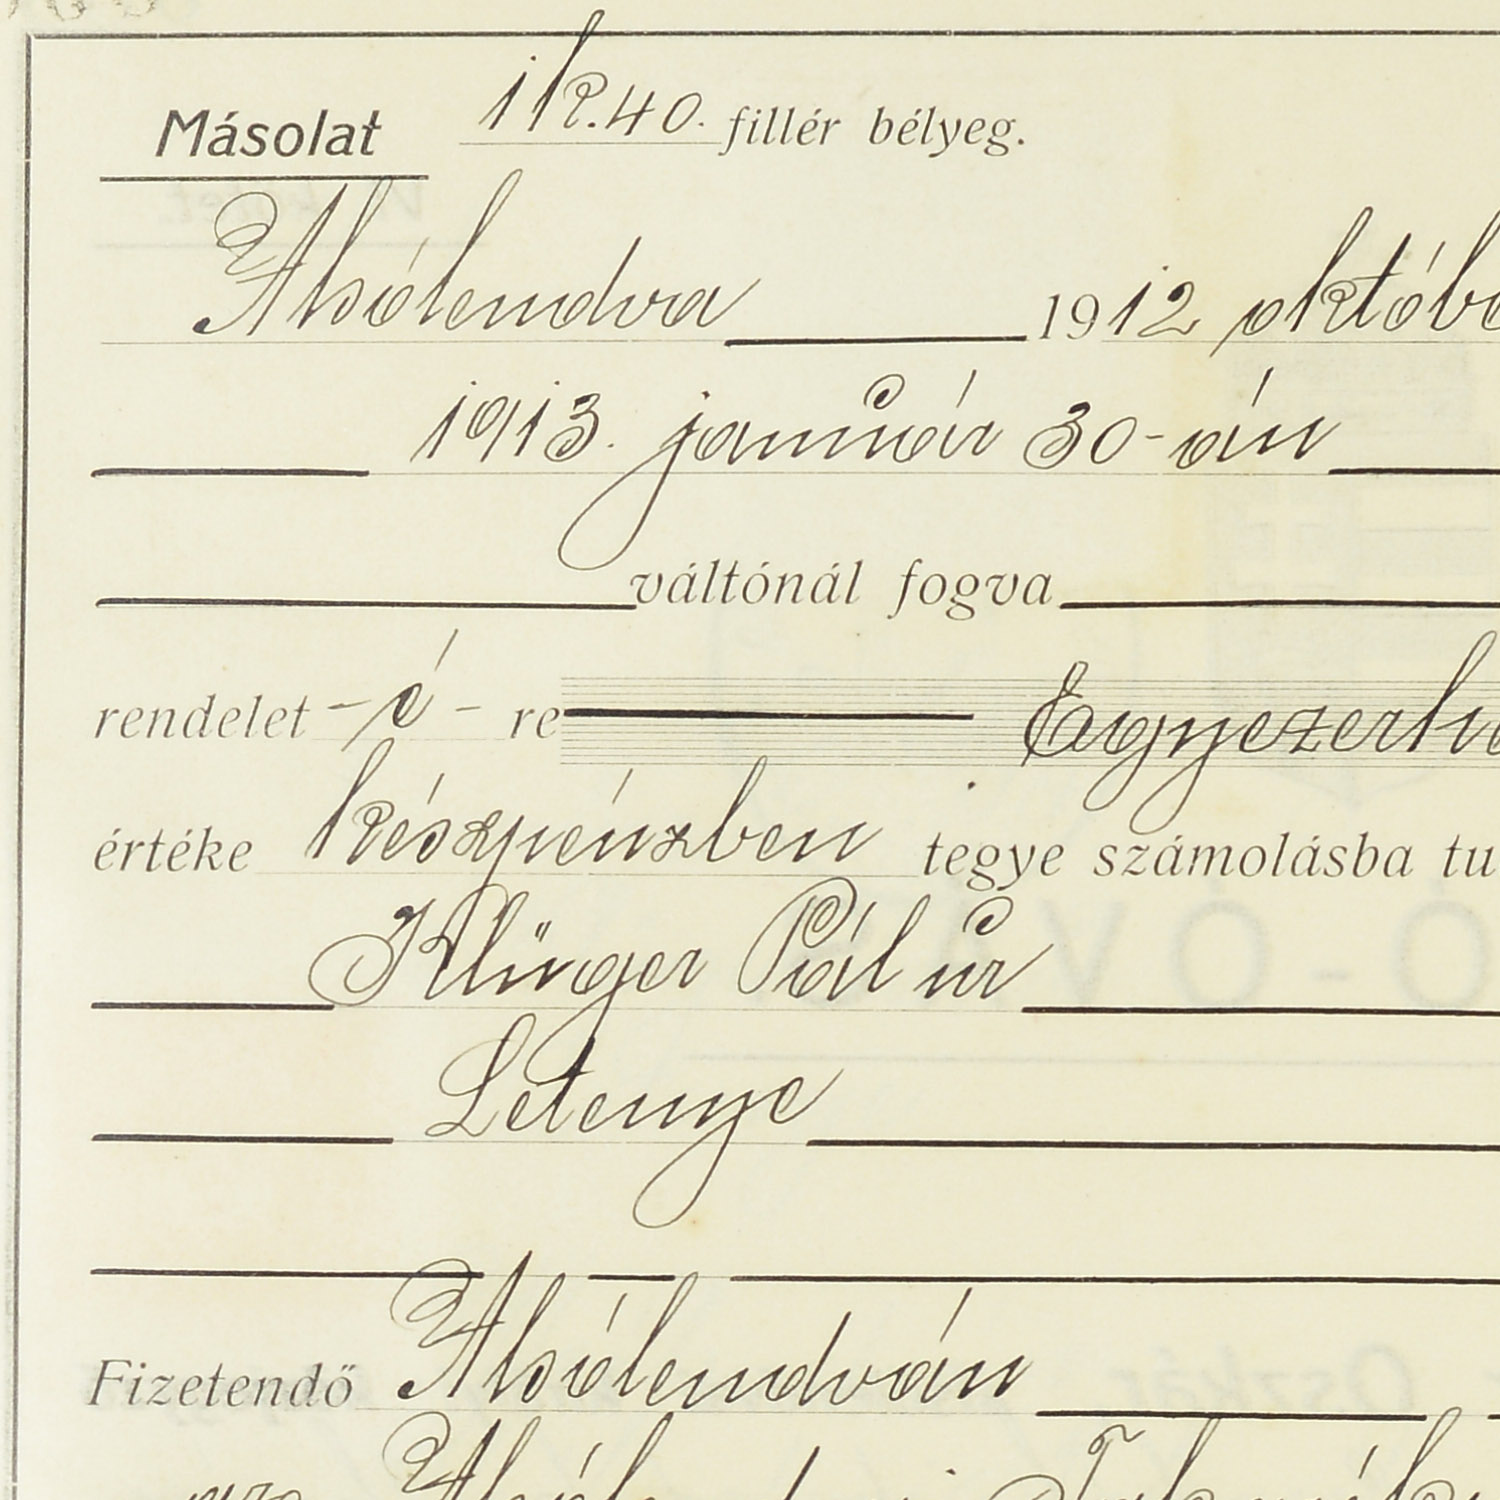 Másolat 1 k. 40. fillér bélyeg.
Alsólendva 1912 októbe
1913. január 30-án
váltónál fogva
rendelet - é - re Egyezerhá
értéke készpénzben tegye számolásba tu
Klüger Pál úr
Letenye
Fizetendő Alsólendván